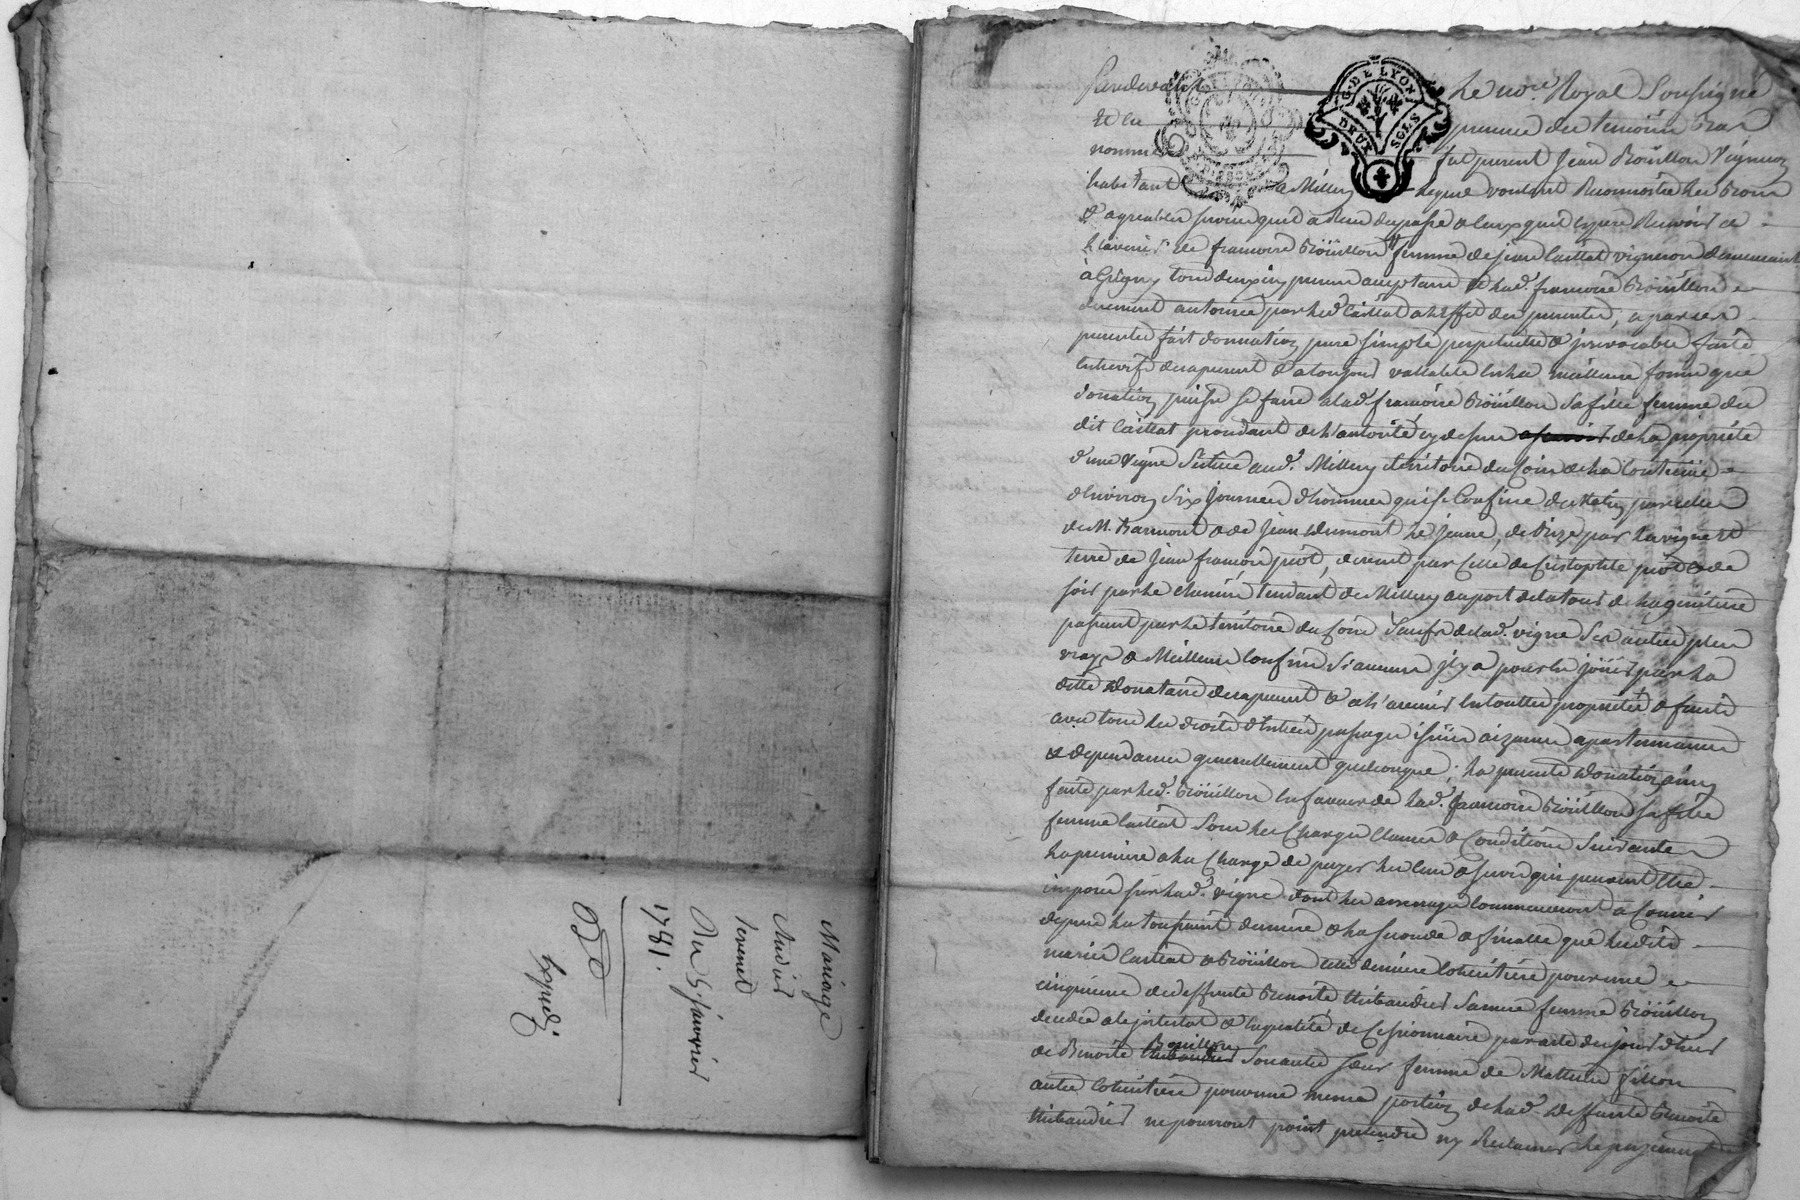 Mariage
1781.
Expedié
Pardevant Le nore. Royal Soussigné
Et en presence des temoins bas
nommés fut present Jean Boüillon Vigneron
habitant a Millery lequel voulant Reconnoitre les bons
& agreables services quil a Recu du passé & ceux quil espere Recevoir a
l'avenir de francoise Boüillon femme de jean Caillat vigneron demeurant
à Grigny tous deux icy presens acceptans & lad. francoise Boüillon
duement autorisée par led. Caillat a l'effet des presentes, a par ces
presentes fait donnation pure simple perpetuelle & jrrevocable faite
entrevifs des apresent & a toujours vallable en la meilleure forme que
donnation puisse se faire a lad. francoise Boüillon sa fille femme du
dit Caillat procedant de l'autorité cy dessus de la propriété
d'une Vigne Scituée aud. Millery territoire du
d'environ Six journées d'hommes qui se Confine de Matin par celles
de M. & de Jean Dumont le Jeune, de bize par la vigne et
terre de Jean francois piot, de vent par Celle de Cristophle piot & de
soir par le chemin tendant de Millery au port de la tour de
passant par le territoire du Sauf de lad. vigne Ses autres plus
vrays & Meilleurs confins si aucuns jl y a pour en joüir par la
ditte donataire des apresent & a l'avenir en toutte propriété & fruits
avec tous les droits d'entrées passages issües aizances apartenances
& dependances generallement quelconques; la presente donation ainsy
faite par led. Boüillon en faveur de lad. francoise Boüillon sa fille
femme Caillat Sous les Charges Clauses & Conditions Suivantes
la premiere a la Charge de payer les Cens & servis qui peuvent etre
imposés sur lad. vigne dont les arrerages commenceront a Courir
depuis la toussaint derniere & la seconde & finalle que lesdits
mariés Caillat & Boüillon cette derniere coheritiere pour une
cinquieme de deffunte Benoite thibaudier Sa mere femme Boüillon
decedée ab jntestat & en qualité de Cessionnaire par acte de jour d'hier
de Benoite Bouillon Son autre soeur femme de Mathieu fillon
autre Coheritiere pour une meme portion de lad. deffunte Benoite
thibaudier ne pourront point pretendre ny Reclamer le payement